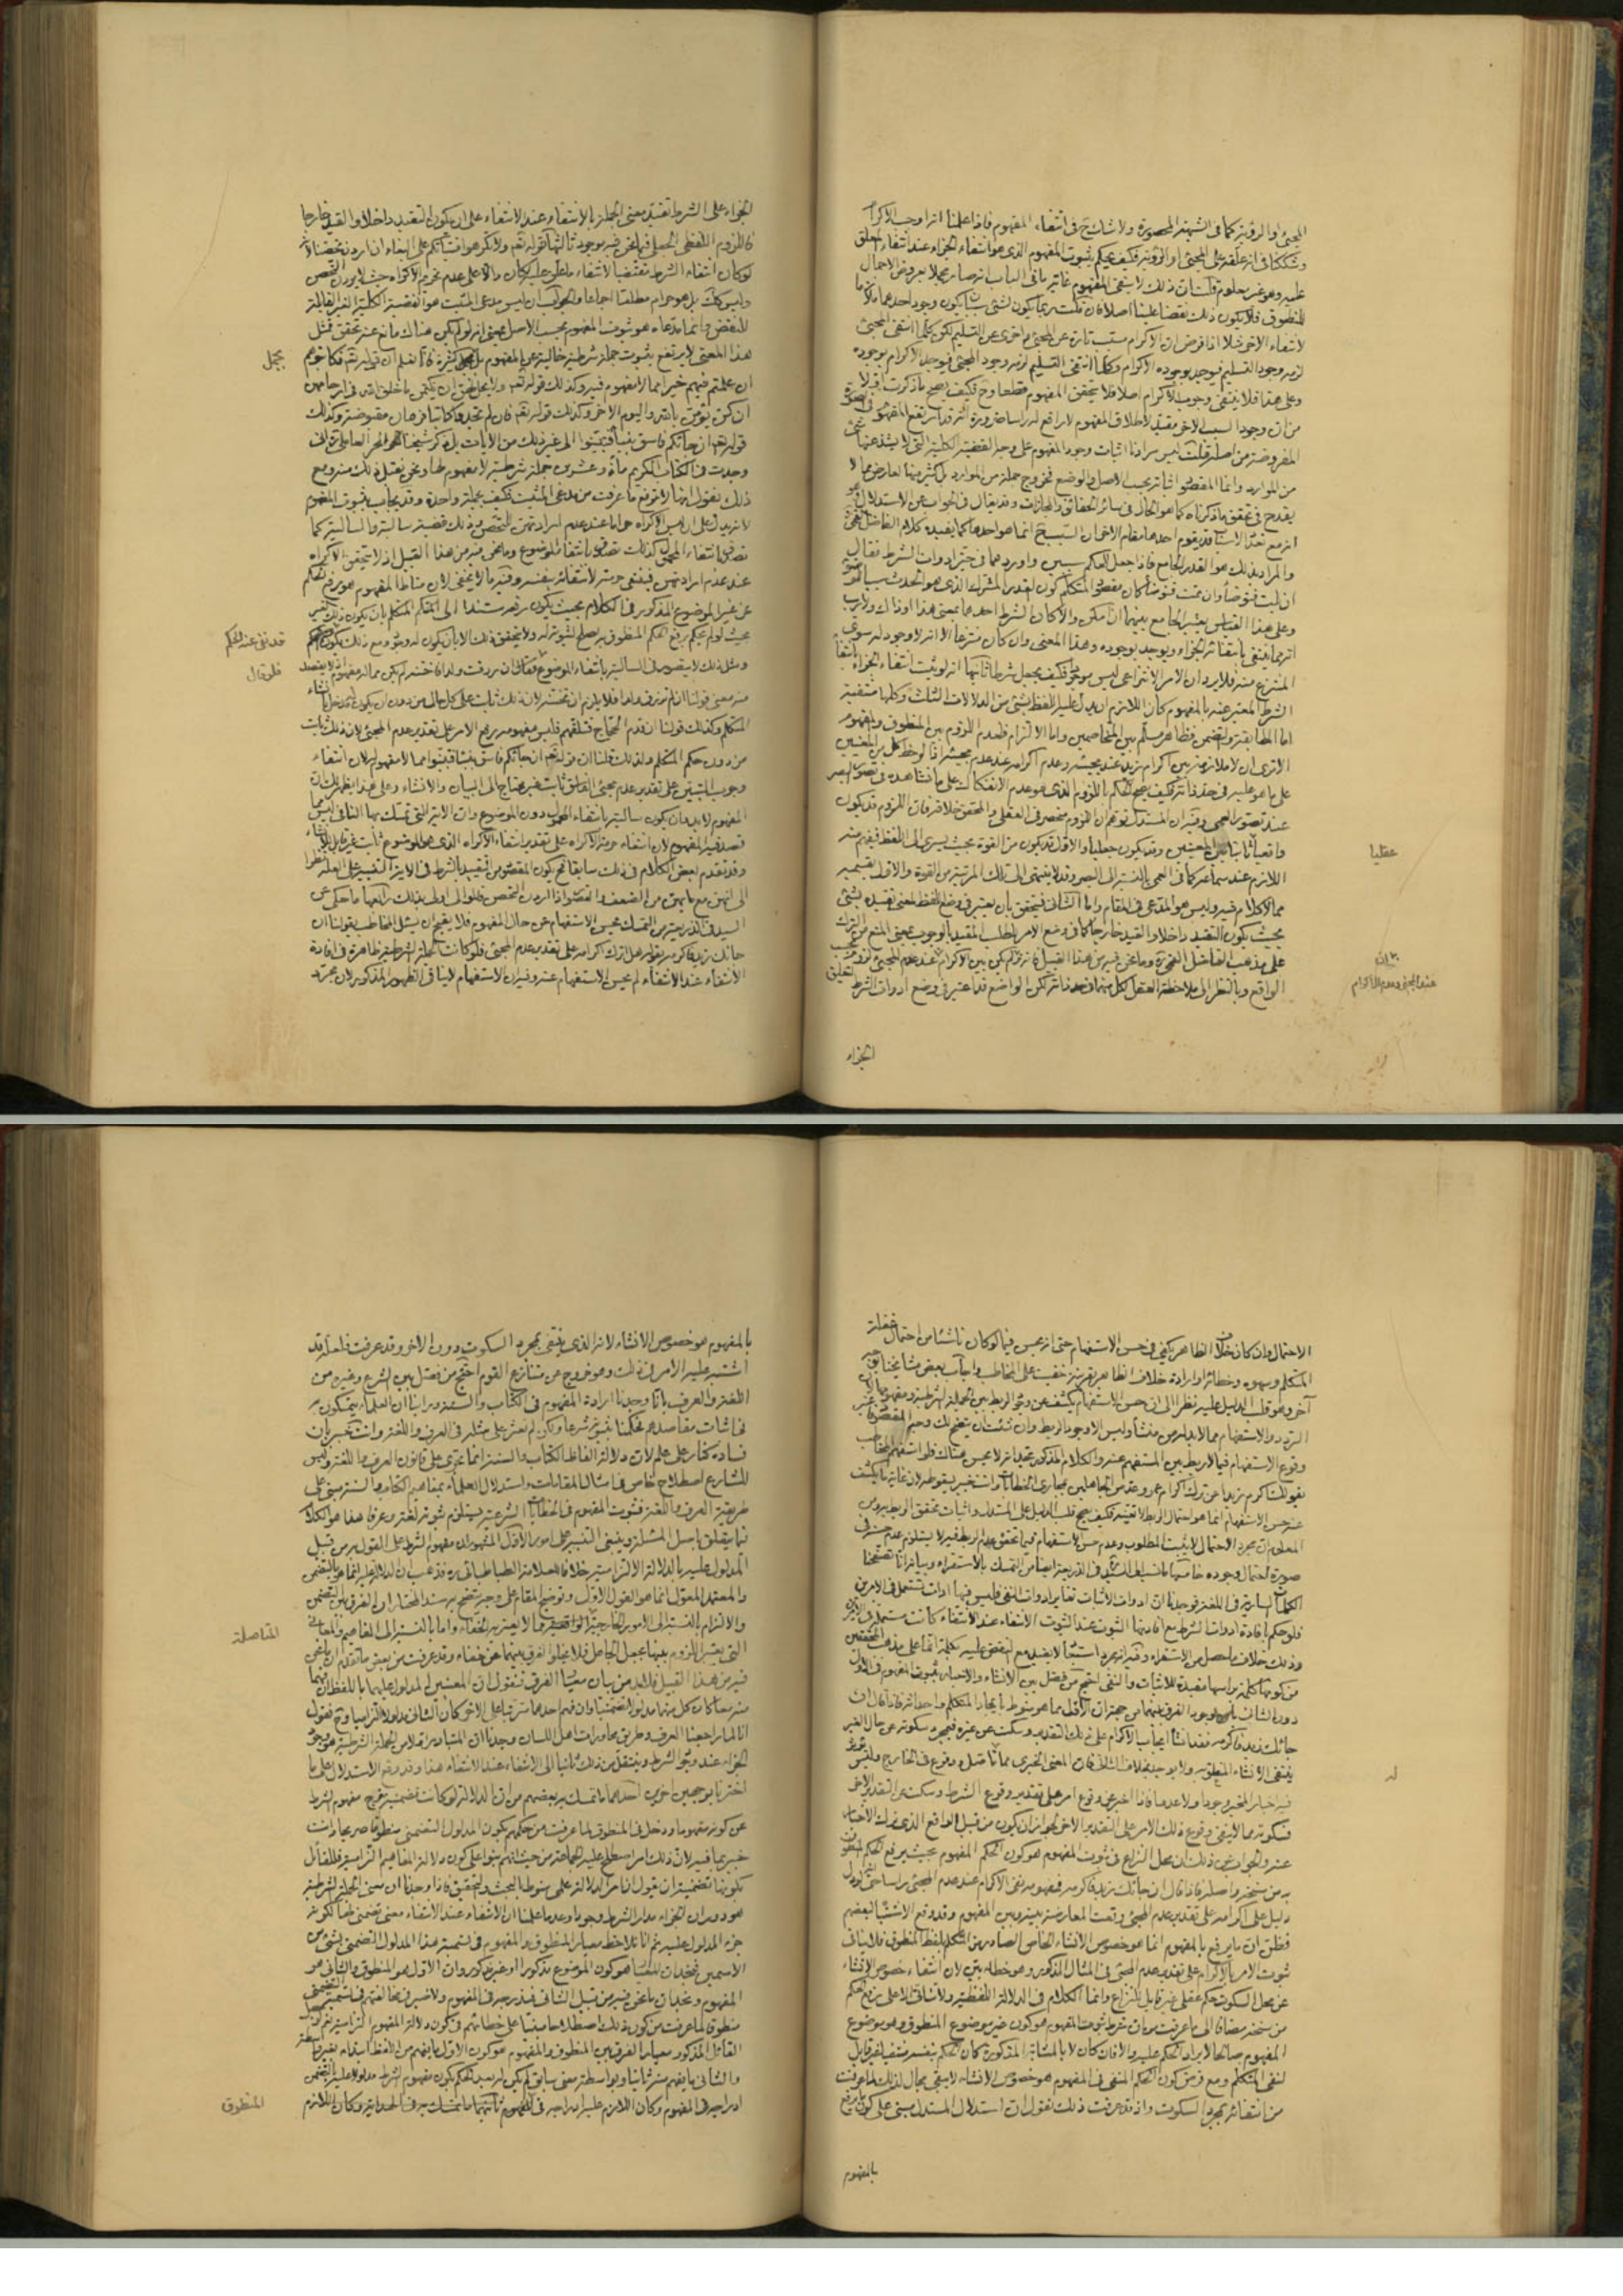 المجئ او الرؤية كما فى الشبهة المحصورة ولا شك ح فى انتفاء المفهوم فاذا علمنا انه اوجب الاكرام
وشككنا فى انه علقه على المجئ او الرؤية فكيف يحكم بثبوت المفهوم الذى هو انتفاء الجزاء عند انتفاء المعلق
عليه وهو غير معلوم قلت ان ذلك لا ينفى المفهوم غاية ما فى الباب انه صار مجملا بعروض الاجمال
للمنطوق فلا يكون ذلك نقضا علينا اصلا فان قلت ربما يكون لشئ سببان يكون وجود احدهما ملازما
لانتفاء الاخر مثلا اذا فرض ان الاكرام مسبب تارة عن المجئ واخرى عن التسليم لكن كلما انتفى المجئ
لزمه وجود التسليم فيوجد بوجوده الاكرام وكلما انتفى التسليم لزمه وجود المجئ فيوجد الاكرام بوجوده
وعلى هذا فلا ينتفى وجوب الاكرام اصلا فلا يتحقق المفهوم قطعا وح فكيف يصح ما ذكرت
من ان وجود السبب الاخر مقيد لاطلاق المفهوم لا رافع له راسا ضرورة انه قد ارتفع المفهوم فى الصورة
المفروضة من اصله قلت ليس مرادنا اثبات وجود المفهوم على وجه القضية الكلية التى لا يشذ عنها شئ
من الموارد وانما المقصود اثباته بحسب الاصل والوضع فخروج جملة من الموارد بل كثير منها لعارض مما لا
يقدح فى تحقق ما ذكرناه كما هو الحال فى سائر الحقائق والمجازات وقد يقال فى الجواب عن الاستدلال هو
انه مع تعدد الاسباب قد يقوم احدهما مقام الاخر ان السبب ح انما هو احدهما كما يفيده كلام الفاضل القمى
والمراد بذلك هو القدر الجامع فاذا جعل للحكم سببين واوردهما فى حيز ادوات الشرط فقال
ان بلت فتوضأ وان نمت فتوضأ كان مقصود المتكلم كون القدر المشترك الذى هو الحدث سببا للوضوء
وعلى هذا القياس يعتبر الجامع بينهما ان امكن والا كان الشرط احدهما بمعنى هذا او ذاك ولا ريب
انه مما ينتفى بانتفائه الجزاء ويوجد بوجوده وهذا المعنى وان كان منتزعا الا انه لا وجود له سوى
المنتزع منه فلا يرد ان الامر الانتزاعى ليس موجودا فكيف يجعل شرطا ثانيها انه لو ثبت انتفاء الجزاء بانتفاء
الشرط المعبر عنه بالمفهوم كان اللازم ان يدل عليه اللفظ بشئ من الدلالات الثلث وكلها منتفية
اما المطابقة والتضمن فظاهر مسلم بين المتخاصمين واما الالتزام فلعدم اللزوم بين المنطوق والمفهوم
الا ترى ان لا ملازمة بين اكرام زيد عند مجيئه وعدم اكرامه عند عدم مجيئه اذا لوحظ كل من المعنيين
على ما هو عليه فى حد ذاته فكيف يصح الحكم باللزوم الذى هو عدم الانفكاك على ما نشاهده فى تصور البصر
عند تصور العمى وفيه ان المستدل توهم ان اللزوم منحصر فى العقلى والتحقيق خلافه فان اللزوم قد يكون
واقعيا ثابتا بين المعنيين وقد يكون جعليا والاول قد يكون من القوة بحيث يسرى الى اللفظ فيفهم منه
اللازم عند سماعه كما فى العمى بالنسبة الى البصر وقد لا ينتهى الى تلك المرتبة من القوة والاول بقسميه
مما لا كلام فيه وليس هو المدعى فى المقام واما الثانى فيتحقق بان يعتبر فى وضع اللفظ لمعنى تقييده بشئ
بحيث يكون التقييد داخلا والقيد خارجا كما فى وضع الامر لطلب المقيد بالوجوب بمعنى المنع من الترك
على مذهب الفاضل القمى ره وما نحن فيه من هذا القبيل فانه لم يكن بين الاكرام عند عدم المجئ لزوم بحسب
الواقع وبالنظر الى ملاحظة العقل لكل منهما فى حد ذاته لكن الواضع قد اعتبر فى وضع ادوات الشرط لتعليق
عقليا
عند المجئ وعدم الاكرام
الجزاء
الجزاء على الشرط تقييد معنى الجملة بالانتفاء عند الانتفاء على ان يكون التقييد داخلا والقيد خارجا
فاللزوم اللفظى الجعلى فيما نحن فيه موجود ثالثها قوله تعالى ولا تكرهوا فتياتكم على البغاء ان اردن تحصنا لانه
لو كان انتفاء الشرط مقتضيا لانتفاء ما علق عليه لكان دالا على عدم تحريم الاكراه حيث لا يردن التحصن
وليس كذلك بل هو حرام مطلقا اجماعا والجواب ان ليس مدعى المثبت هو القضية الكلية الغير القابلة
للنقض وانما مدعاه هو ثبوت المفهوم بحسب الاصل بمعنى انه لو لم يكن هناك مانع عنه تحقق فمثل
هذا المعنى لا يرتفع بثبوت جملة شرطية خالية عن المفهوم بل جمل كثيرة
ان علمتم فيهم خيرا مما لا مفهوم فيه وكذلك قوله تعالى ولا يحل لهن ان يكتمن ما خلق الله فى ارحامهن
ان كن يؤمن بالله واليوم الاخر وكذلك قوله تعالى فان لم تجدوا كاتبا فرهان مقبوضة وكذلك
قوله تعالى ان جائكم فاسق بنبأ فتبينوا الى غير ذلك من الايات بل ذكر شيخنا الحر العاملى ره انى
وجدت فى الكتاب الكريم مائة وعشرين جملة شرطية لا مفهوم لها ونحن نقبل ذلك منه ومع
ذلك نقول انها لا ترفع ما عرفت من مدعى المثبت فكيف بجملة واحدة وقد يجاب بثبوت المفهوم
لانه يدل على ان ليس الاكراه حراما عند عدم ارادتهن للتحصن وذلك قضية سالبة والسالبة كما
تصدق بانتفاء المحمول كذلك تصدق بانتفاء الموضوع وما نحن فيه من هذا القبيل اذ لا يتحقق الاكراه
عند عدم ارادتهن فينتفى حرمته لانتفائه بنفسه وفيه ما لا يخفى لان مناط المفهوم هو رفع الحكم
عن غير الموضوع المذكور فى الكلام بحيث يكون رفعه مستندا الى الحكم المتكلم بان يكون ذلك الغير
بحيث لو لم يحكم برفع الحكم المنطوق به لصلح لثبوته له ولا يتحقق ذلك الا بان يكون له وجود ومع ذلك يكون
ومثل ذلك لا يتصور فى السالبة بانتفاء الموضوع فقال ان رزقت ولدا فاختنه لم يكن مما له مفهوم اذ لا يقصد
منه معنى قولنا ان لم ترزق ولدا فلا يلزم ان تختنه لان ذلك ثابت على كل حال من دون ان يكون له مدخل لانشاء
المتكلم وكذلك قولنا ان قدم الحجاج فتلقهم فليس مفهومه رفع الامر على تقدير عدم المجئ لان ذلك ثابت
من دون حكم المتكلم ولذلك قلنا ان قوله تعالى ان جائكم فاسق بنبأ فتبينوا مما لا مفهوم له لان انتفاء
وجوب التبين على تقدير عدم مجئ الفاسق ثابت غير محتاج الى البيان والانشاء وعلى هذا يظهر لك ان
المفهوم لا بد وان يكون سالبة بانتفاء المحمول دون الموضوع وان الاية التى تمسك بها النافى ليس مما
قصد فيه المفهوم لان انتفاء حرمة الاكراه على تقدير انتفاء الاكراه الذى هو الموضوع ثابت غير قابل للانشاء
وقد تقدم بعض الكلام فى ذلك سابقا
الى انهن مع ما بهن من الضعف والنقص اذا اردن التحصن فالموالى اولى بذلك رابعها ما حكى عن
السيد فى الذريعة من التمسك بحسن الاستفهام عن حال المفهوم فلا يقبح ان يسئل المخاطب بقولنا ان
جائك زيد فاكرمه بقوله هل اترك اكرامه على تقدير عدم المجئ فلو كانت الجملة الشرطية ظاهرة فى افادة
الانتفاء عند الانتفاء لم يحسن الاستفهام عنه وفيه ان الاستفهام لا ينافى الظهور المذكور لان مجرد
قد نفى عند الحكم
فلو قال
الاحتمال وان كان خلاف الظاهر يكفى فى حسن الاستفهام حتى انه يحسن فيما لو كان ناشئا من احتمال غفلة
المتكلم وسهوه وخطائه او ارادة خلاف الظاهر بقرينة خفيت على المخاطب واجاب بعض مشايخنا بوجه
آخر وهو قلب الدليل عليه نظرا الى ان حسن الاستفهام يكشف عن وجود الربط بين الجملة الشرطية ومفهومها لان
التردد والاستفهام مما لا بد له من منشأ وليس الا وجود الربط وان شئت ان يتضح لك وجه المقصود فاعتبر
وقوع الاستفهام فيما لا ربط بين المستفهم عنه والكلام المذكور تجد انه لا يحسن هناك فلو استفهم المخاطب
بقولك اكرم زيدا عن ترك اكرام عمرو عد من الجاهلين بمجارى الخطابات وانت خبير بسقوطه لان غاية ما يكشف
عنه حسن الاستفهام انما هو احتمال الربط لا تعينه فكيف يصح قلب الدليل على المستدل واثبات تحقق الربط به ومن
المعلوم ان مجرد الاحتمال لا يثبت المطلوب وعدم حسن الاستفهام فيما تحقق عدم الربط فيه لا يستلزم عدم حسنه فى
صورة احتمال وجوده خامسها ما نسب الى السيد فى الذريعة ايضا من التمسك بالاستقراء وبيانه انا تصفحنا
الكلمات السارية فى اللغة فوجدنا ان ادوات الاثبات تغاير ادوات النفى فليس فيها ادوات تشتمل على الامرين
فلو حكم بافادة ادوات الشرط مع افادتها الثبوت عند الثبوت الانتفاء عند الانتفاء كانت مستعملة فى الامرين
وذلك خلاف ما حصل من الاستقراء وفيه انه مجرد استبعاد لا يفيد مع انتقض عليه بكلمة انما على مذهب المحققين
من كونها كلمة براسها مفيدة للاثبات والنفى احتج من فصل بين الانشاء والاخبار بثبوت المفهوم فى الاول
دون الثانى بوجود الفرق بينهما من جهة ان الاول مما هو منوط بايجاد المتكلم واحداثه فاذا قال ان
جائك زيد فاكرمه فقد انشأ ايجاب الاكرام على ذلك التقدير وسكت عن غيره فبمجرد سكوته عن حال الغير
ينتفى الانشاء المتعلق به ولا يوجد بخلاف الثانى فان المعنى الخبرى مما له تاصل ووقوع فى الخارج وليس
فيه اخبار المخبر وجودا ولا عدما فاذا اخبر عن وقوع امر على تقدير وقوع الشرط وسكت عن التقدير الاخر
فسكوته مما لا ينفى وقوع ذلك الامر على التقدير الاخر لجواز ان يكون من قبيل الواقع الذى ترك الاخبار
عنه والجواب عن ذلك ان محل النزاع فى ثبوت المفهوم هو كون الحكم المفهوم بحيث يرفع الحكم المنطوق
به من سنخه واصله فاذا قال ان جائك زيد فاكرمه فمفهومه نفى الاكرام عند عدم المجئ راسا حتى لو دل
دليل على اكرامه على تقدير عدم المجئ وقعت المعارضة بينه وبين المفهوم وقد وقع الاشتباه لبعضهم
فظن ان ما يرفع بالمفهوم انما هو خصوص الانشاء الخاص الصادر من المتكلم بلفظ المنطوق فلا ينافى
ثبوت الامر بالاكرام على تقدير عدم المجئ فى المثال المذكور وهو خطاء بين لان انتفاء خصوص الانشاء
عن محل السكوت حكم عقلى غير قابل للنزاع وانما الكلام فى الدلالة اللفظية
من سنخه مضافا الى ما عرفت من ان شرط ثبوت المفهوم هو كون غير موضوع المنطوق وهو موضوع
المفهوم صالحا لايراد الحكم عليه والا فان كان لا بالمثابة المذكورة كان الحكم بنفسه منتفيا غير قابل
لنفى المتكلم ومع فرض كون الحكم المنفى فى المفهوم هو خصوص الانشاء لا يبقى مجال لذلك لما عرفت
من انتفائه بمجرد السكوت واذ قد عرفت ذلك نقول ان استدلال المستدل مبنى على كون ما يرفع
له
بالمفهوم
بالمفهوم هو خصوص الانشاء لانه الذى ينتفى بمجرد السكوت دون الاخر وقد عرفت فلعله قد
اشتبه عليه الامر فى ذلك وهو خروج عن متنازع القوم احتج من فصل بين الشرع وغيره من
اللغة والعرف بانا وجدنا ارادة المفهوم فى الكتاب والسنة وراينا ان العلماء يتمسكون به
فى اثبات مقاصدهم فحكمنا بثبوته شرعا ولكن لم نعثر على مثله فى العرف واللغة وانت خبير بان
فساده كنار على علم لان دلالة الفاظ الكتاب والسنة انما تجرى على قانون العرف واللغة وليس
للشارع اصطلاح خاص فى امثال المقامات واستدلال العلماء بمفاهيم الكتاب والسنة مبنى على
طريقة العرف واللغة فثبوت المفهوم فى الخطابات الشرعية يستلزم ثبوته لغة وعرفا هذا هو الكلام
فيما يتعلق باصل المسئلة وينبغى التنبيه على امور الاول المشهور ان مفهوم الشرط على القول به من قبيل
المدلول عليه بالدلالة الالتزامية خلافا للعلامة الطباطبائى ره فذهب الى ان الدلالة عليه انما هو بالتضمن
والمعتمد المعول انما هو القول الاول وتوضيح المقام على وجه يتضح به سند المختار ان الفرق بين التضمن
والالتزام بالنسبة الى الامور الخارجية الواقعية مما لا يعتريه الخفاء واما بالنسبة الى المفاهيم والمعانى
التى يعتبر اللزوم بينها بجعل الجاعل فلا يخلو الفرق بينهما عن خفاء وقد عرفت من بعض ما تقدم ان ما نحن
فيه من هذا القبيل فلا بد من بيان معيار الفرق فنقول ان المعنيين المدلول عليهما باللفظ ان فهما
منه معا كان كل منهما مدلولا تضمنيا وان فهم احدهما مترتبا على الاخر كان الثانى مدلولا التزاميا وح نقول
انا لما راجعنا العرف وطريق محاورات اهل اللسان وجدنا ان المتبادر اولا من الجملة الشرطية هو وجود
الجزاء عند وجود الشرط وينتقل من ذلك ثانيا الى الانتفاء عند الانتفاء هذا وقد وقع الاستدلال على ما
اخترنا بوجهين اخرين احدهما ما تمسك به بعضهم من ان الدلالة لو كانت تضمنية لخرج مفهوم الشرط
عن كونه مفهوما ودخل فى المنطوق لما عرفت من حكمهم بكون المدلول التضمنى منطوقا صريحا وانت
خبير بما فيه لان ذلك امر اصطلح عليه الجماعة من حيث انهم بنوا على كون دلالة المفاهيم التزامية فللقائل
بكونها تضمنية ان يقول ان امر الدلالة على منوط بالبحث والتحقيق فاذا وجدنا ان معنى الجملة الشرطية
هو دوران الجزاء مدار الشرط وجودا وعدما علمنا ان الانتفاء عند الانتفاء معنى تضمنى لها لكونه
جزء المدلول عليه ثم انا نلاحظ معيار المنطوق والمفهوم فى تسمية هذا المدلول التضمنى بشئ من
الاسمين فنجد ان المعيار هو كون الموضوع مذكورا او غير مذكور وان الاول هو المنطوق والثانى هو
المفهوم ونجد ان ما نحن فيه من قبيل الثانى فندرجه فى المفهوم ولا ضير فى مخالفتهم فى تسمية التضمنى
منطوقا لما عرفت من كون ذلك اصطلاحا مبنيا على خطائهم فى كون دلالة المفهوم التزامية
القائل المذكور معيار الفرق بين المنطوق والمفهوم هو كون الاول ما يفهم من اللفظ ابتداء بغير واسطة
والثانى ما يفهم منه ثانيا وبواسطة معنى سابق لم يكن له بعد الحكم بكون مفهوم الشرط مدلولا عليه بالتضمن
ادراجه فى المفهوم وكان اللازم عليه ادراجه فى المنطوق ثانيهما ما تمسك به فى الهداية وكان اللازم
المنطوق